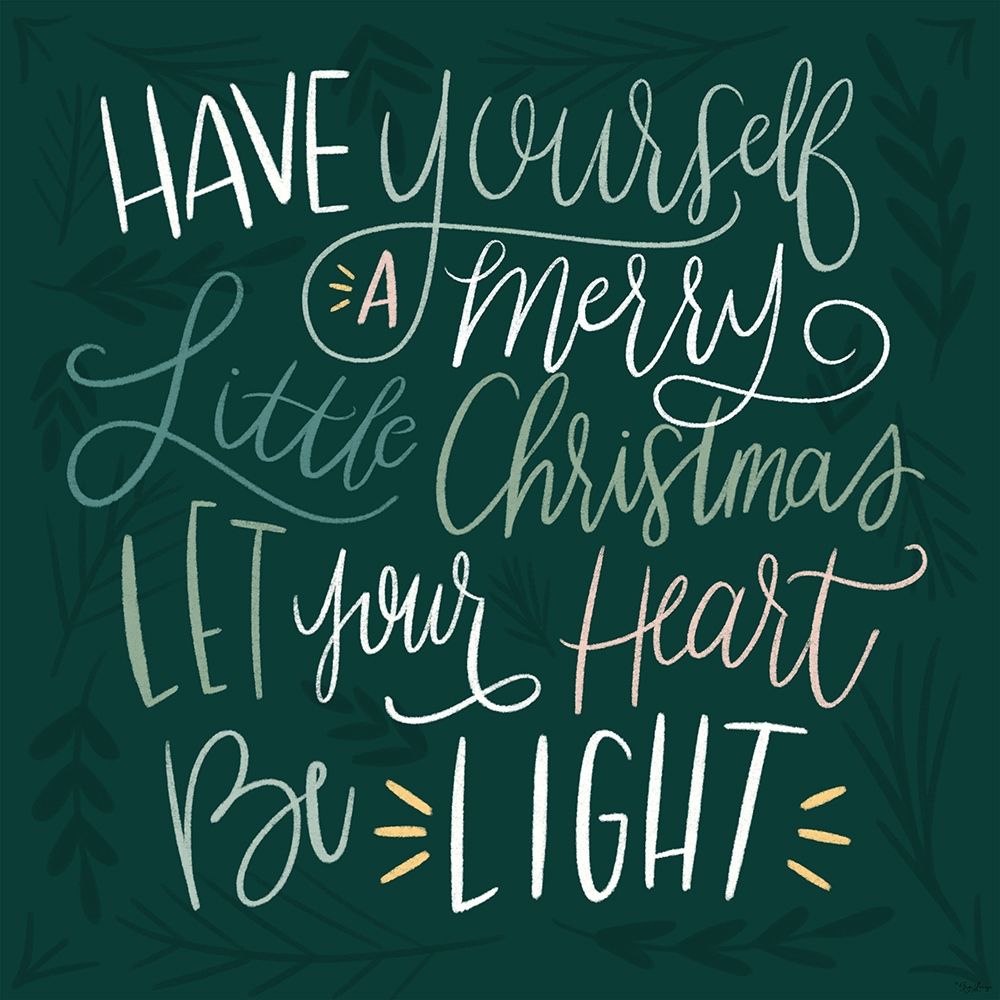 HAVE yourself
A merry
Little Christmas
LET your Heart
Be LIGHT